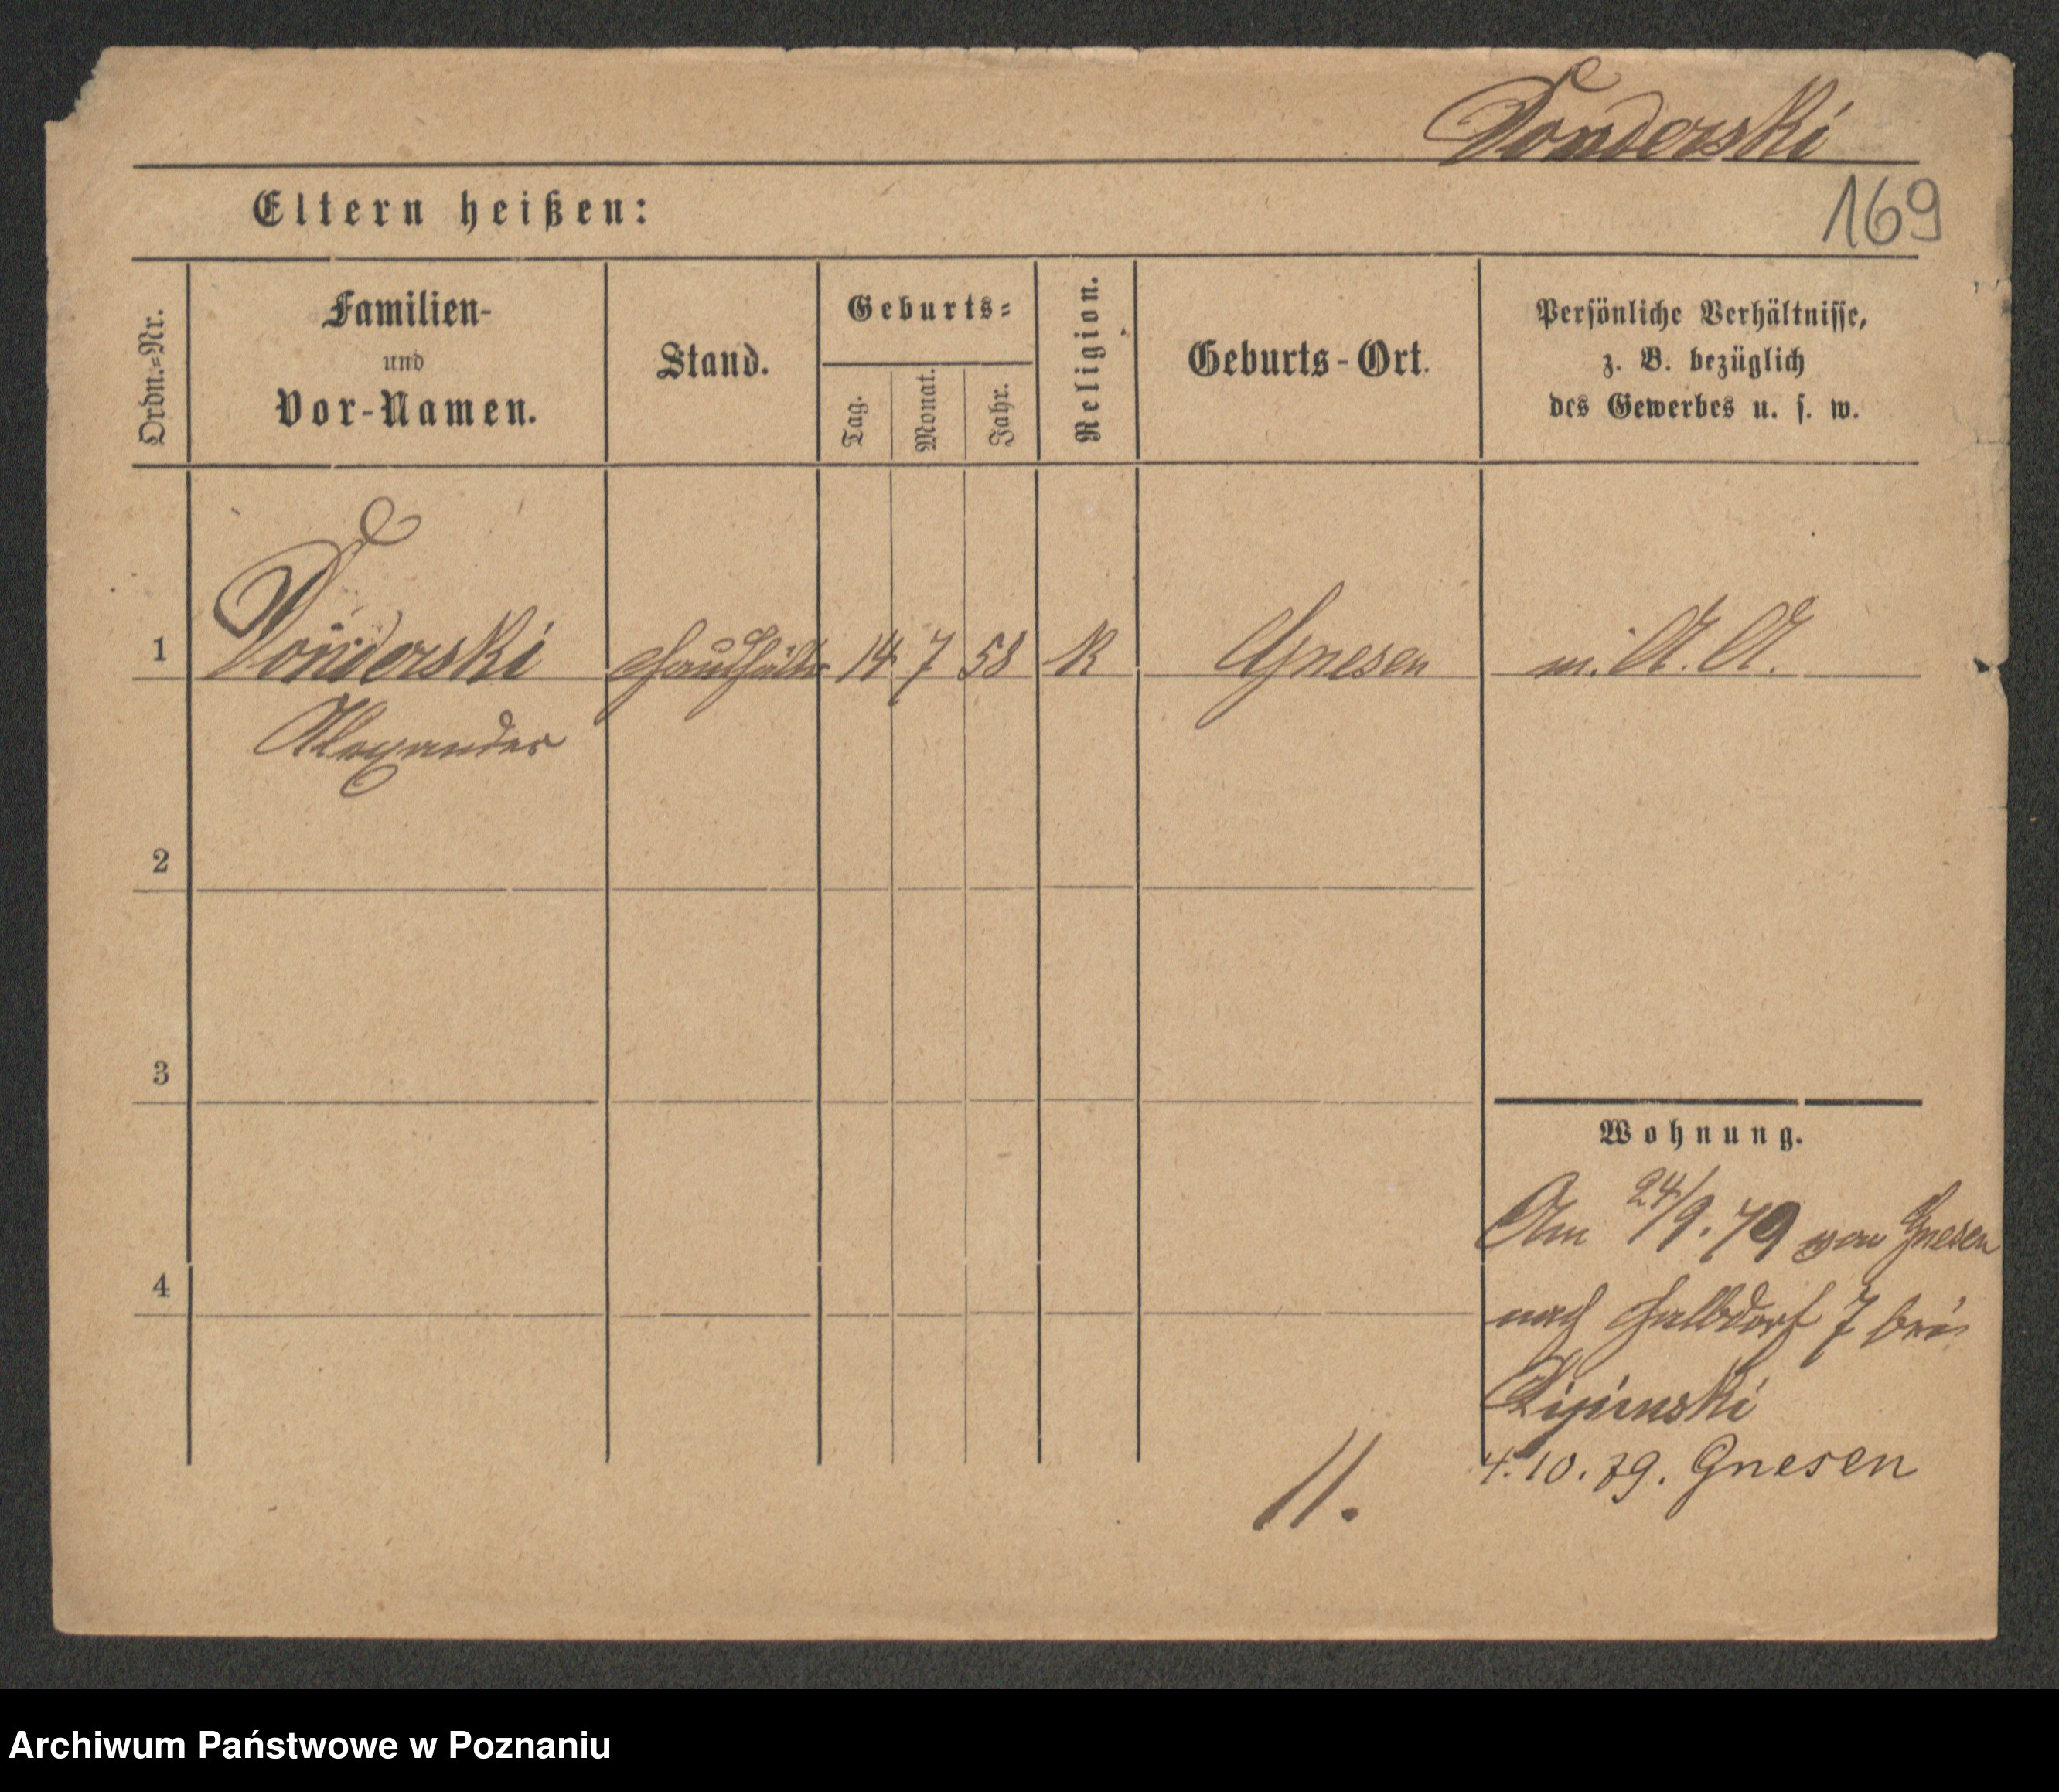 Donderski
169
Eltern heißen:
Ordn.-Nr.
Familien-
und
Vor-Namen.
Stand.
Geburts-
Tag.
Monat.
Jahr.
Religion.
Geburts-Ort.
Persönliche Verhältnisse,
z. B. bezüglich
des Gewerbes u. s. w.
1 Donderski Haushälter 14 7 58 K Gnesen m. A. A.
Alexander
2
3
Wohnung.
Am 24/9.79 von Gnesen
4
nach Halbdorf 7 bei
Lipinski
4.10.79. Gnesen
11.
Archiwum Państwowe w Poznaniu